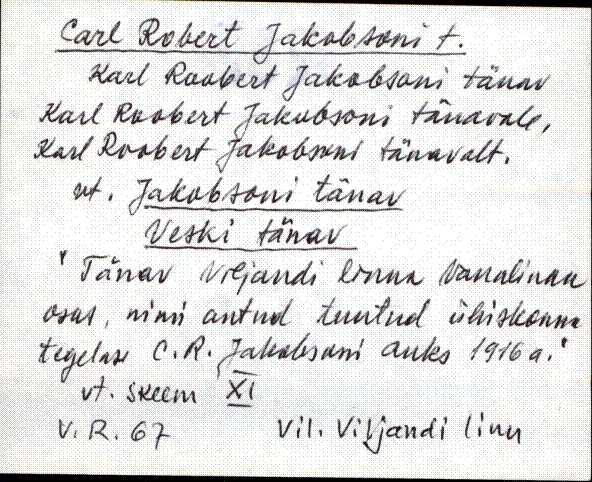 Carl Robert Jakobsoni t.
Karl Roobert Jakobsoni tänav
Karl Roobert Jakobsoni tänavale,
Karl Roobert Jakobsoni tänavalt.
vt. Jakobsoni tänav
Veski tänav
" Tänav Viljandi linna Vanalinna
osas, nimi antud tuntud ühiskonna
tegelase C.R. Jakobsoni auks 1916 a."
vt. skeem XI
V.R. 67 Vil. Viljandi linn